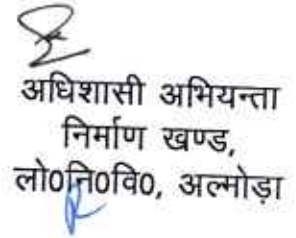 अधिशासी अभियन्ता
निर्माण खण्ड,
लो०नि०वि०, अल्मोड़ा